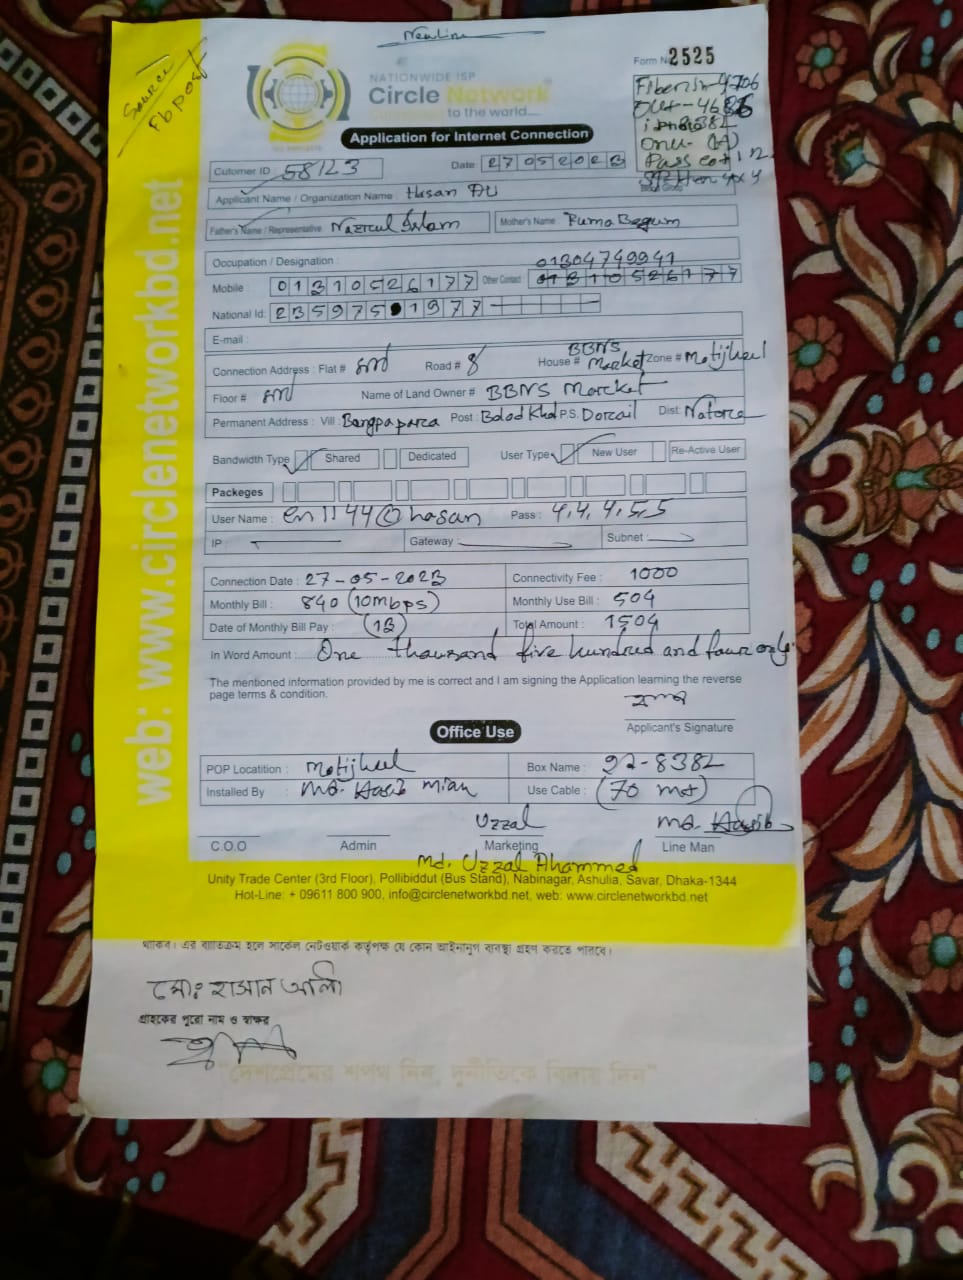 Newline
Source
Fb post
NATIONWIDE ISP
Circle Network
Connected to the world....
Form No 2525
Fiber in-4706
Out-4686
Application for Internet Connection
Cutomer ID 58123
Date : 27052023
Applicant Name / Organization Name : Hasan Ali
Father's Name / Representative Nazrul Islam Mother's Name : Ruma Begum
Occupation / Designation :
01304749941
Mobile : 01310526177 Other Contact : 01310526177
National Id: 2359751977
E-mail :
Connection Address : Flat # 3rd Road # 8 House # BBNS Market Zone # Motijheel
Floor # 3rd Name of Land Owner # BBNS Market
Permanent Address : Vill : Bangpaparca Post : Balod Khal P.S. Dorcail Dist: Natore
Bandwidth Type Shared Dedicated User Type New User Re-Active User
Packeges
User Name : en1144@hasan Pass : 4,4,4,5,5
IP : Gateway : Subnet :
Connection Date : 27-05-2023 Connectivity Fee : 1000
Monthly Bill : 840 (10mbps) Monthly Use Bill : 504
Date of Monthly Bill Pay : (13) Total Amount : 1504
In Word Amount : One thousand five hundred and four only.
The mentioned information provided by me is correct and I am signing the Application learning the reverse
page terms & condition.
Applicant's Signature
Office Use
POP Locatition : Motijheel Box Name : 92-8382
Installed By : Md. Hasib Mian Use Cable : (70 mt)
Uzzal Md. Hasib
C.O.O Admin Marketing Line Man
Md. Uzzal Ahammed
Unity Trade Center (3rd Floor), Pollibiddut (Bus Stand), Nabinagar, Ashulia, Savar, Dhaka-1344
Hot-Line: + 09611 800 900, info@circlenetworkbd.net, web: www.circlenetworkbd.net
web: www.circlenetworkbd.net
থাকিব। এর ব্যতিক্রম হলে সার্কেল নেটওয়ার্ক কর্তৃপক্ষ যে কোন আইনানুগ ব্যবস্থা গ্রহণ করতে পারবে।
মোঃ হাসান আলি
গ্রাহকের পুরো নাম ও স্বাক্ষর
"দেশপ্রেমের শপথ নিন, দুর্নীতিকে বিদায় দিন"